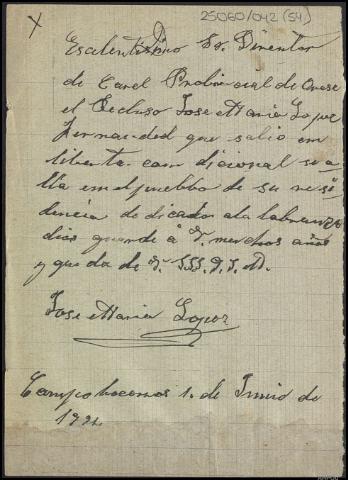 25060/042 (54)
X
Escelentisimo Sr. Director
de Carel Probincial de Orense
el Recluso Jose Maria Lopez
Fernanded que salio en
liberta condicional se a
lla en el puebbo de su resi
dencia dedicado a la labranza
dios guarde á V. muchos años
y queda de V.
Jose Maria Lopez
1. de Junio de